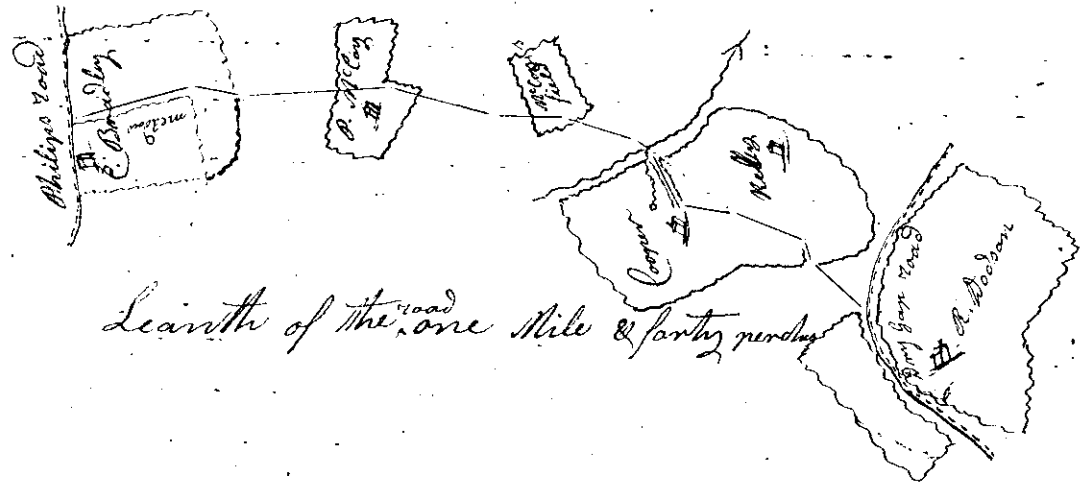 Philips road
E. Bradley
medow
P. McCoy
McCoy
field
Cooper and
Kelly
gap road
R. Dodson
Leainth of the road one Mile & forty perches